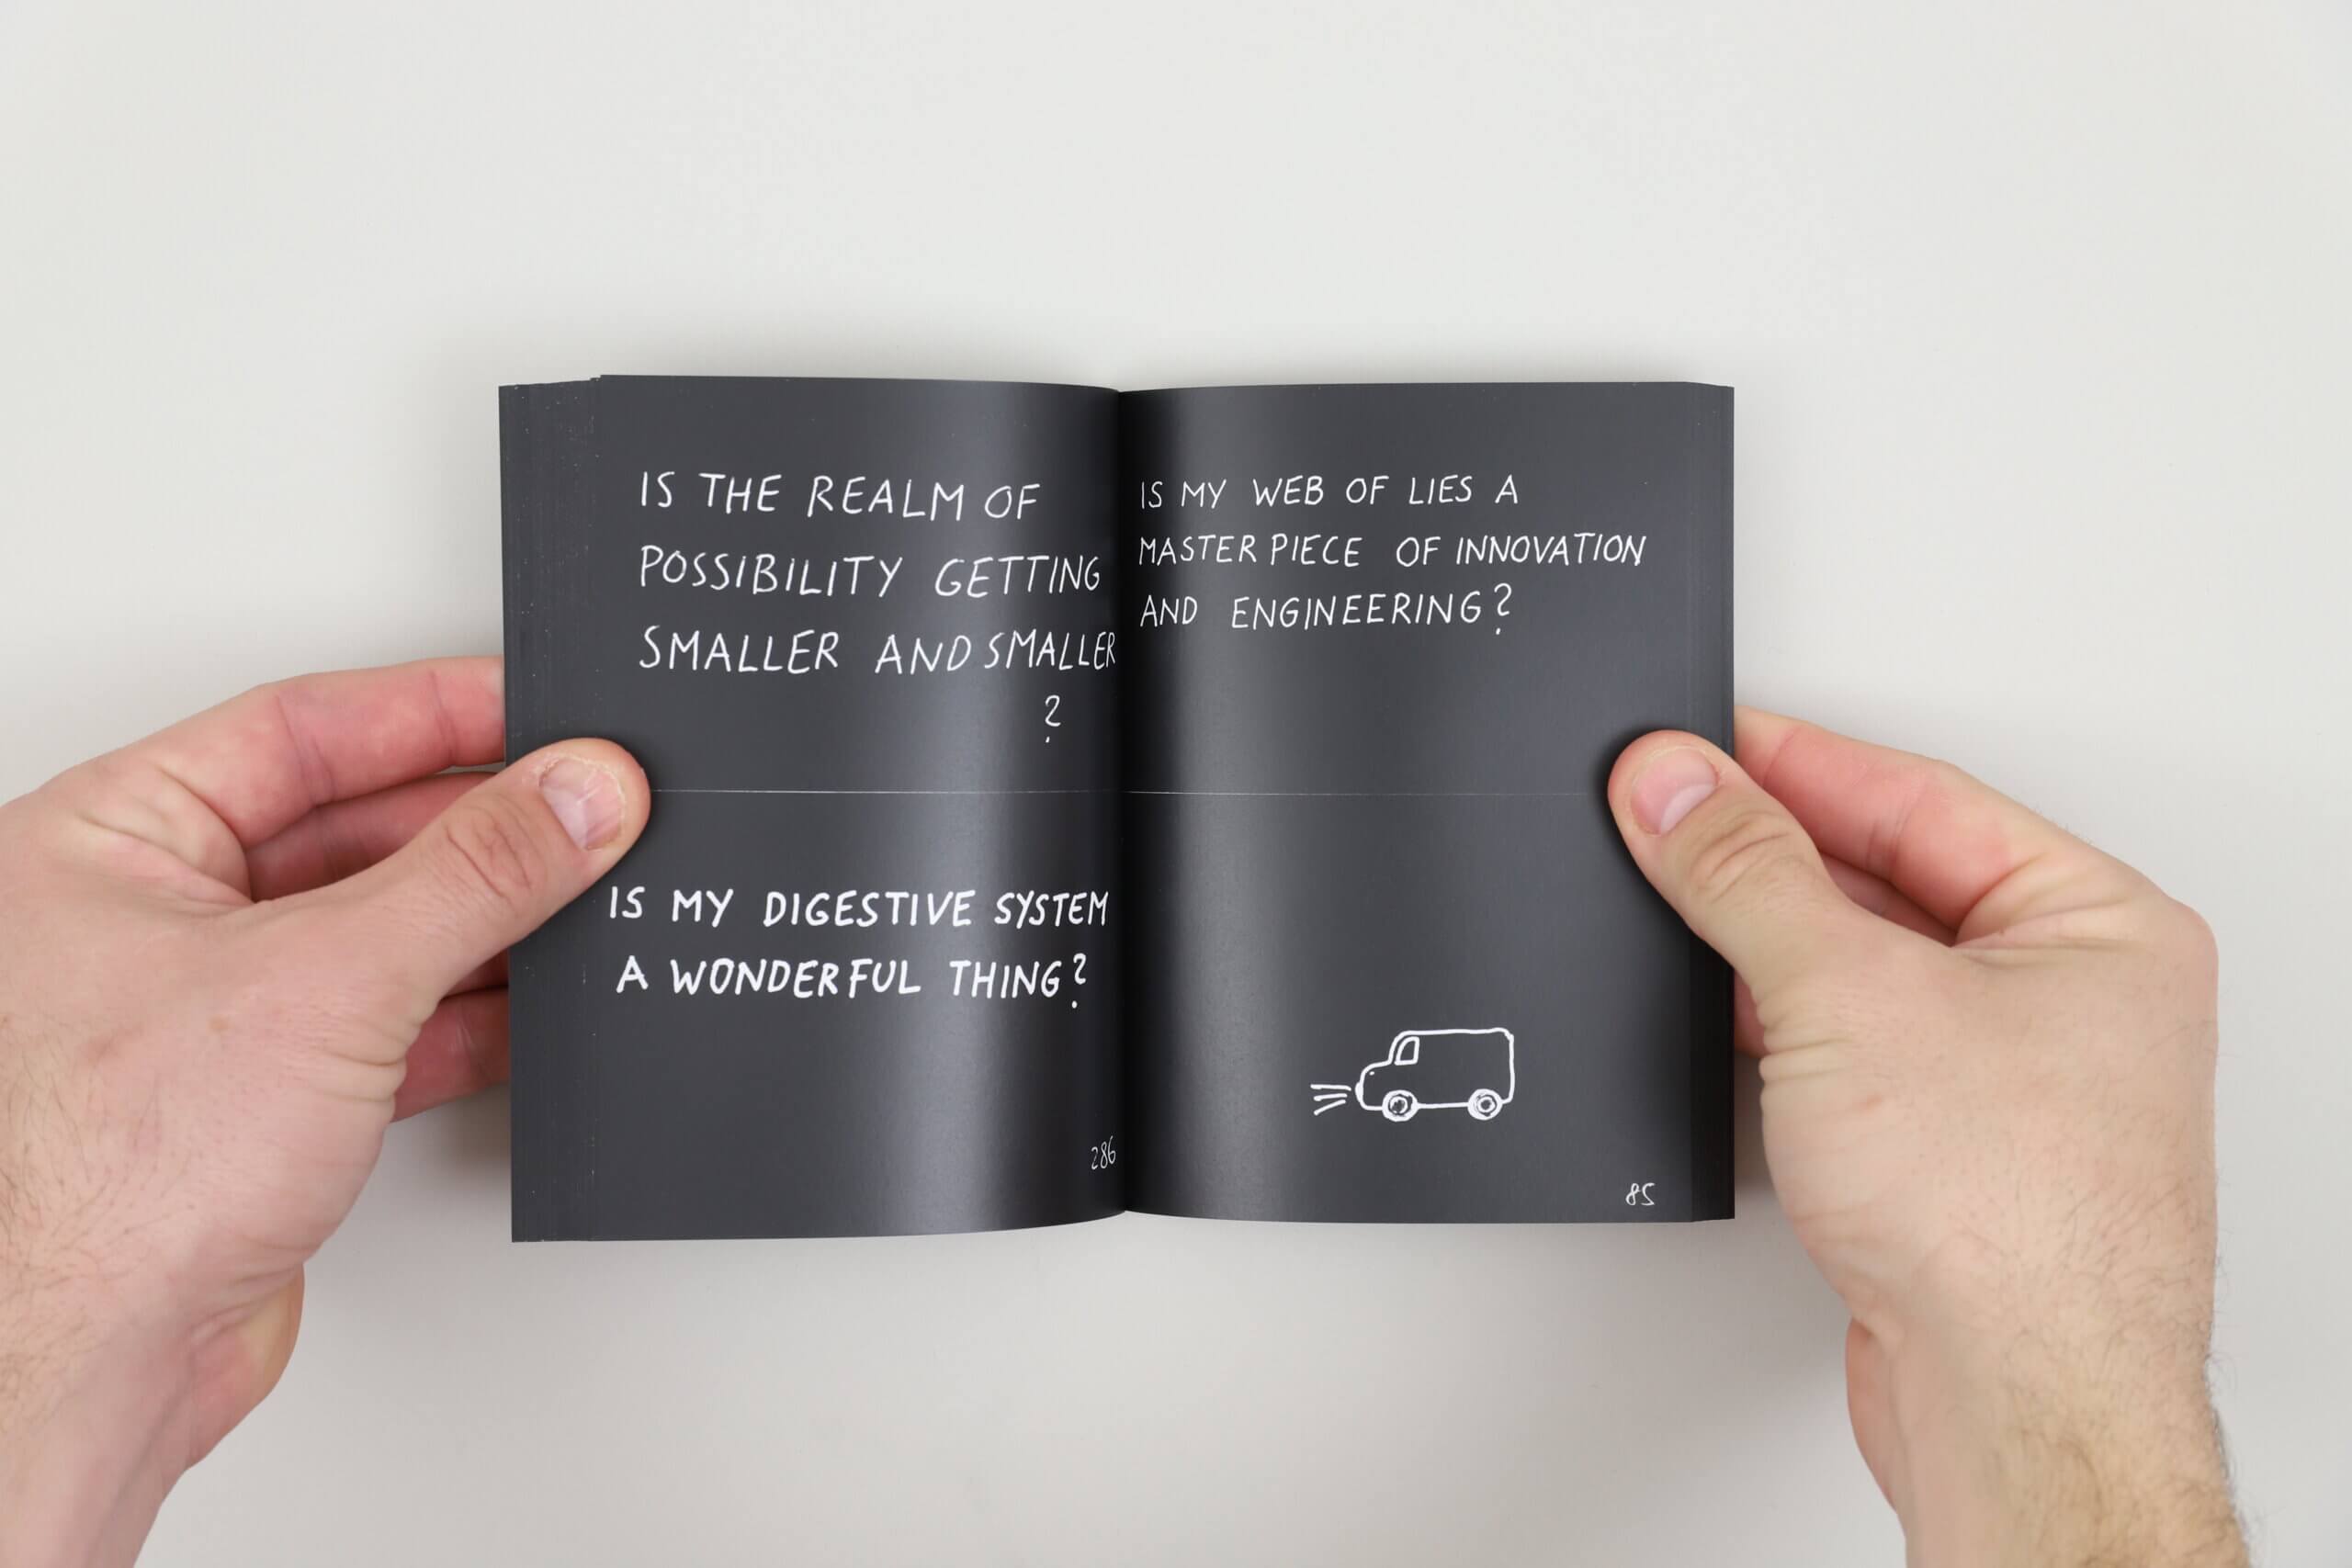 IS THE REALM OF
POSSIBILITY GETTING
SMALLER AND SMALLER
?
IS MY DIGESTIVE SYSTEM
A WONDERFUL THING?
286
IS MY WEB OF LIES A
MASTERPIECE OF INNOVATION
AND ENGINEERING?
85